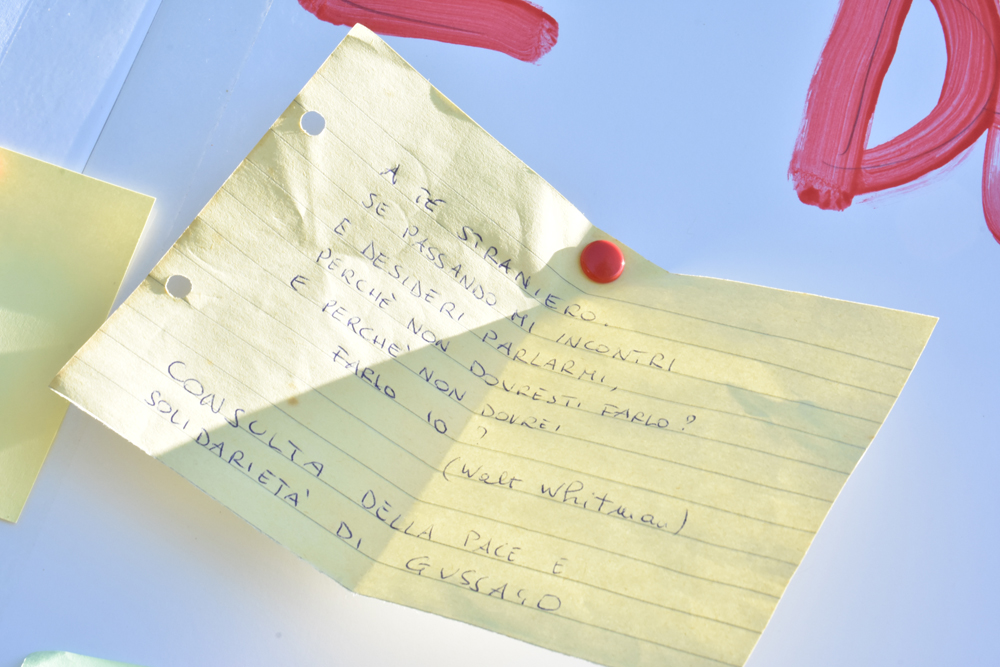 A TE STRANIERO.
SE PASSANDO MI INCONTRI
E DESIDERI PARLARMI,
PERCHÈ NON DOVRESTI FARLO?
E PERCHÈ NON DOVREI
FARLO IO ?
(Walt Whitman)
CONSULTA DELLA PACE E
SOLIDARIETÀ DI GUSSAGO
D